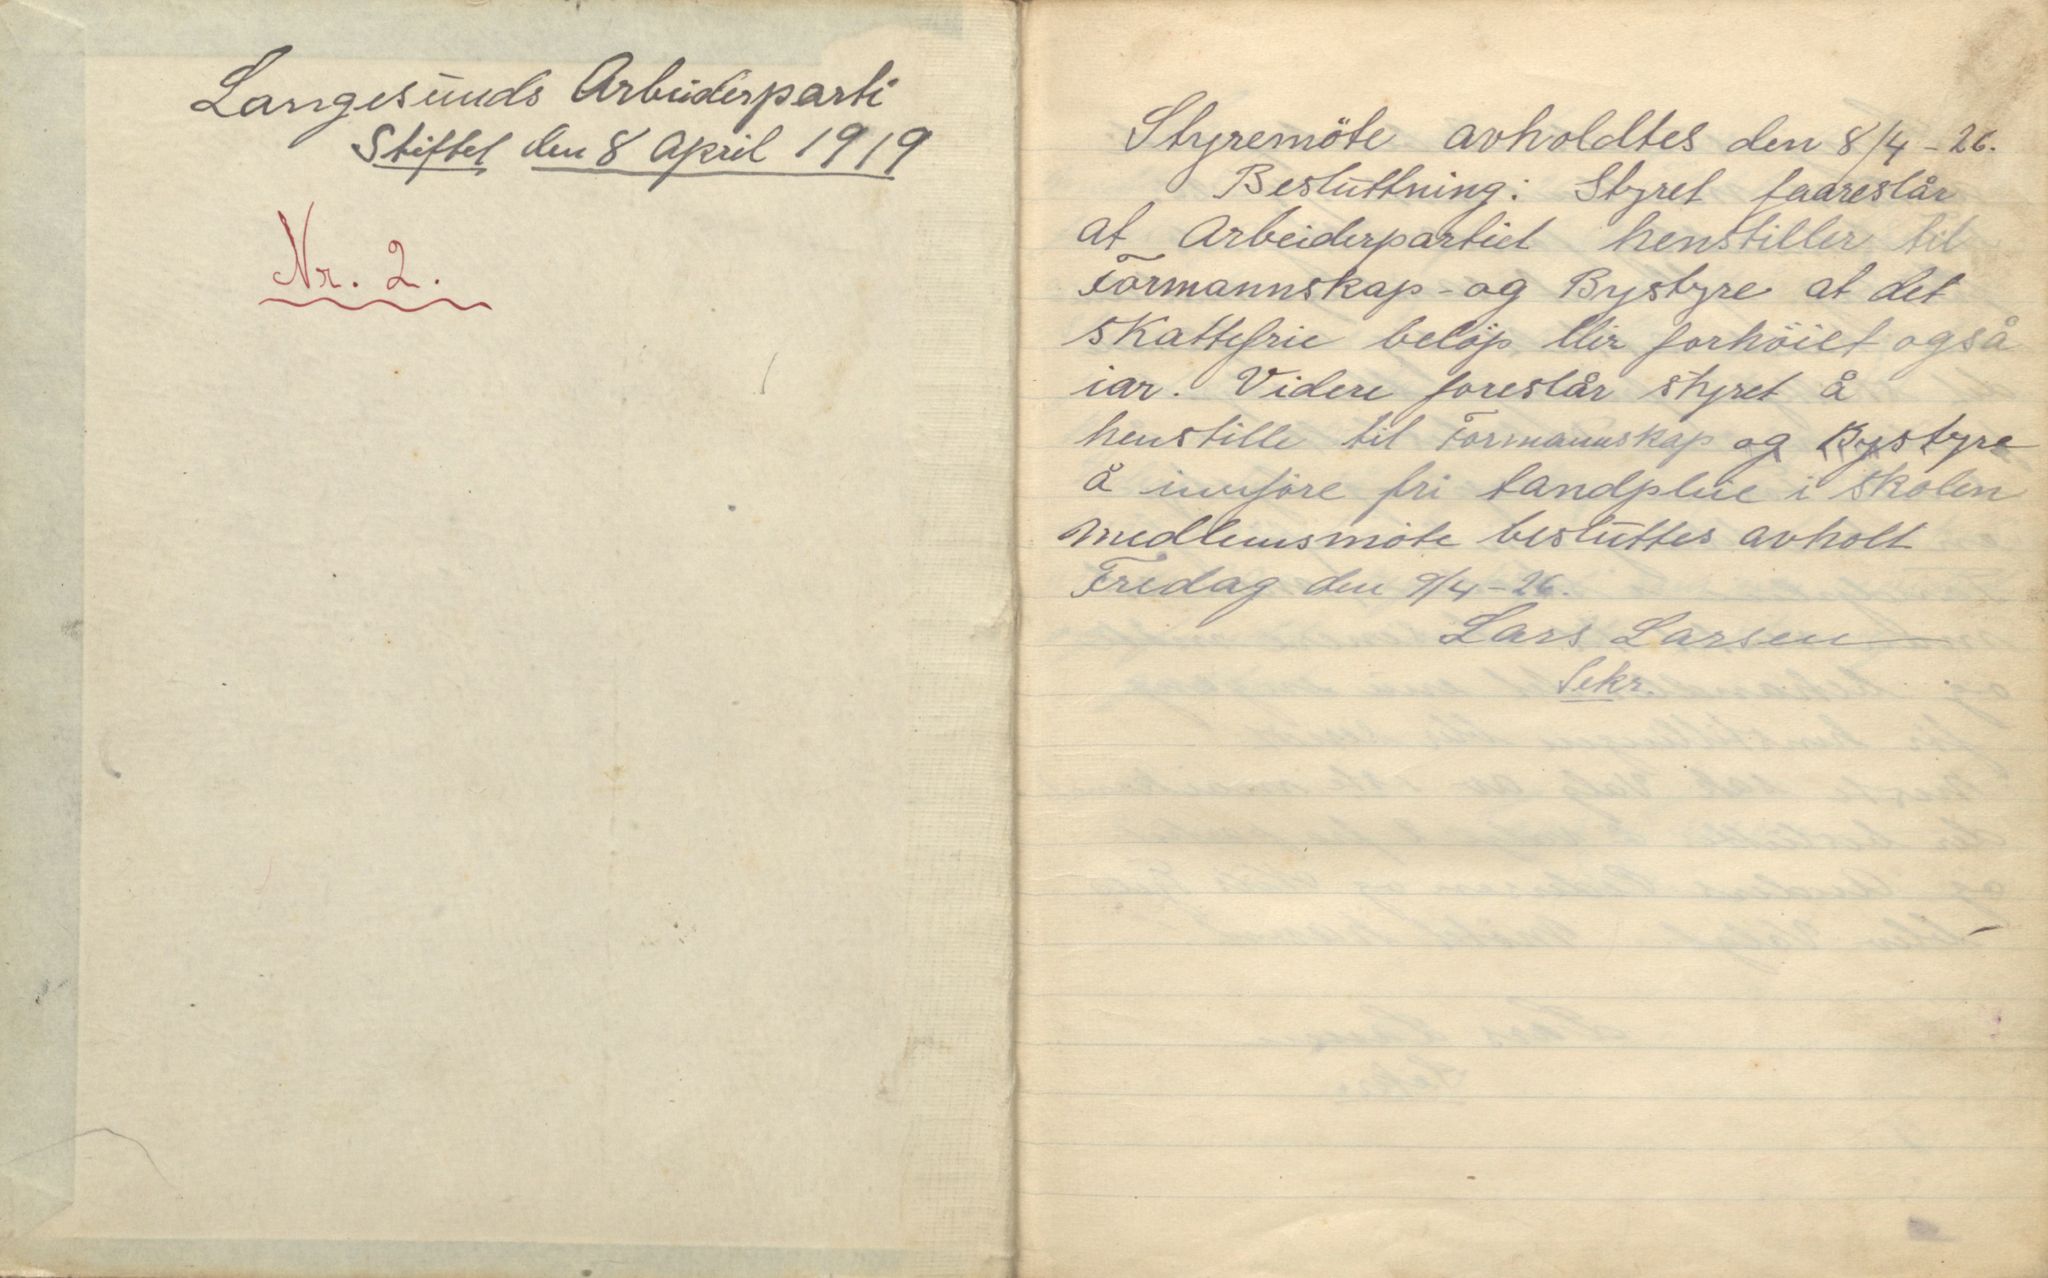 Langesunds Arbeiderparti
Stiftet den 8 April 1919
Nr. 2.
Styremöte avholdtes den 8/4-26.
Besluttning: Styret faareslår
at Arbeiderpartiet henstiller til
Formannskap-og Bystyre at det
skattefrie belöp blir forhöiet også
iar. Videre foreslår styret å
henstille til Formannskap og Bystyre
å innføre fri tandpleie i skolen
Medlemsmöte besluttes avholt
Fredag den 9/4-26.
Lars Larsen
Sekr.